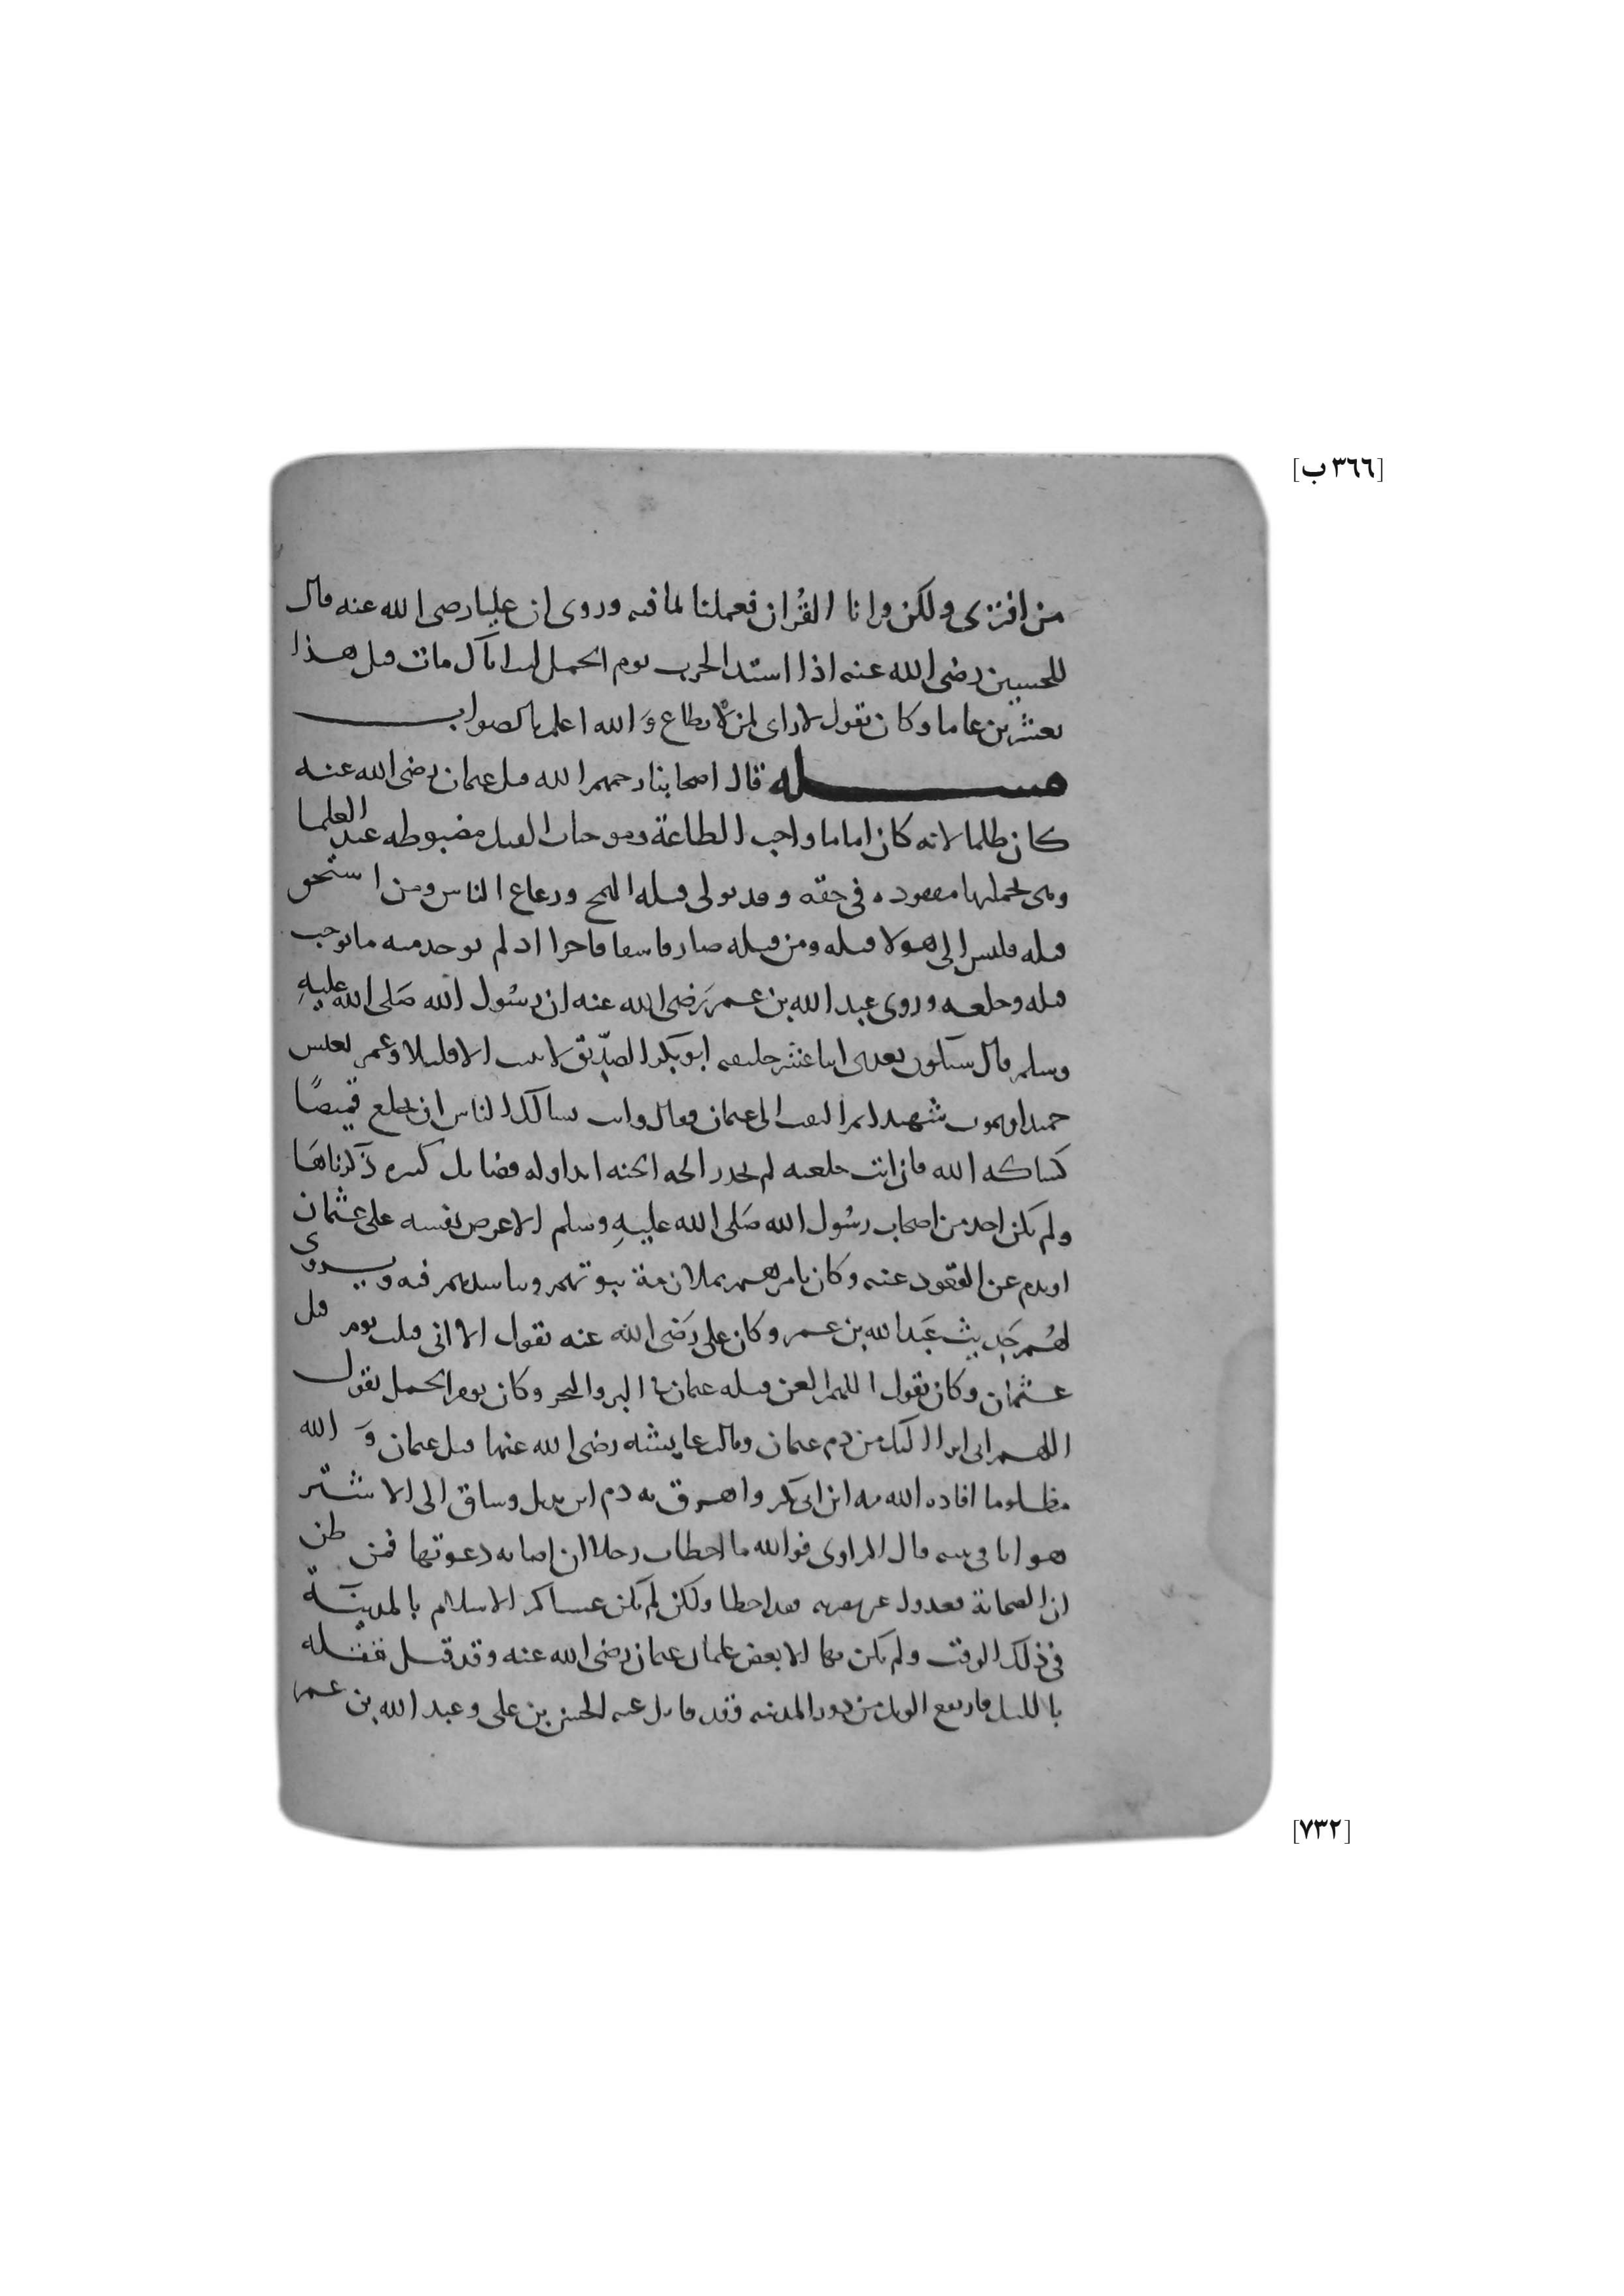 [٣٦٦ ب]
من افترى ولكن قرانا القُران فعملنا لما فيه وروى ان عليا رضى الله عنه قال
للحسين رضى الله عنه اذا اشتد الحرب يوم الجمل ليت اباك مات قبل هذا
بعشرين عاما وكان يقول لا راى لمن لا يطاع وَالله اعلم بالصواب
مسله قال اصحابنا رحمهم الله قتل عثمان رضى الله عنه
كان ظلما لانه كان اماما واجب الطاعة وموجبات القتل مضبوطه عند العلما
وهى بجملتها مفقوده فى حقه وقد تولى قتله الهمج ورعاع الناس ومن استحق
قتله فليس الى هولا قتله ومن قتله صار فاسقا فاجرا اذ لم يوجد منه ما يوجب
قتله وخلعه وروى عبد الله بن عمر رَضى الله عنه ان رسُول الله صَلى الله عليهِ
وسلم قال سيكون بعدى اثنا عشر خليفه ابو بكر الصدّيق لا يلبث الا قليلا وعمر يعيش
حميدا ويموت شهيدا ثم التفت الى عثمان فقال وانت يسالك الناس ان تخلع قميصًا
كساكه الله فان انت خلعته لم تجد رائحة الجنه ابدا وله فضايل كثيره ذكرناهَا
ولم يكن احد من اصحاب رسُول الله صَلى الله عليهِ وسلم الا عرض نفسه على عثمان
او ندم عن القعود عنه وكان يامرهم بملازمة بيوتهم ويناشدهم فيه ويروى
لهُم حَديث عَبد الله بن عمر وكان على رَضى الله عنه يقول الا انى قتلت يوم قتل
عثمان وكان يقول اللهم العن قتله عثمان فى البر والبحر وكان يوم الجمل يقول
اللهم انى ابرا اليك من دم عثمان وقالت عايشه رضى الله عنها قتل عثمان وَالله
مظلوما اقاد الله به ابن ابى بكر واهرق به دم ابن بديل وساق الى الاشتر
هوانا فى بيته قال الراوى فوالله ما اخطات رجلا ان اصابه دعوتها فمن ظن
ان الصحابة فقد اخطا ولكن لم يكن عساكر الاسلام بالمدينة
فى ذلك الوقت ولم يكن بها الا بعض غلمان عثمان رضى الله عنه وقد قيل قتله
بالليل من دور المدينه فقد قاتل عنه الحسن بن على وعبد الله بن عمر
[٧٣٢]